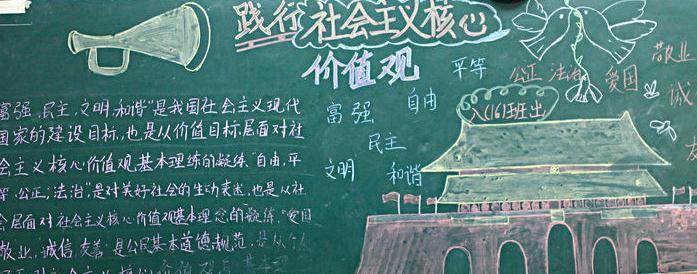 践行社会主义核心
价值观
平等
公正 法治
爱国
敬业
诚
富强
自由
民主
文明
和谐
八(16)班出
富强,民主,文明,和谐"是我国社会主义现代
国家的建设目标,也是从价值目标层面对社
会主义核心价值观基本理练的凝练"自由,平
等,公正,法治"是对美好社会的生动表述,也是从社
会层面对社会主义核心价值观基本理念的凝练,"爱国
敬业,诚信,友善"是公民基本道德规范,是从个人